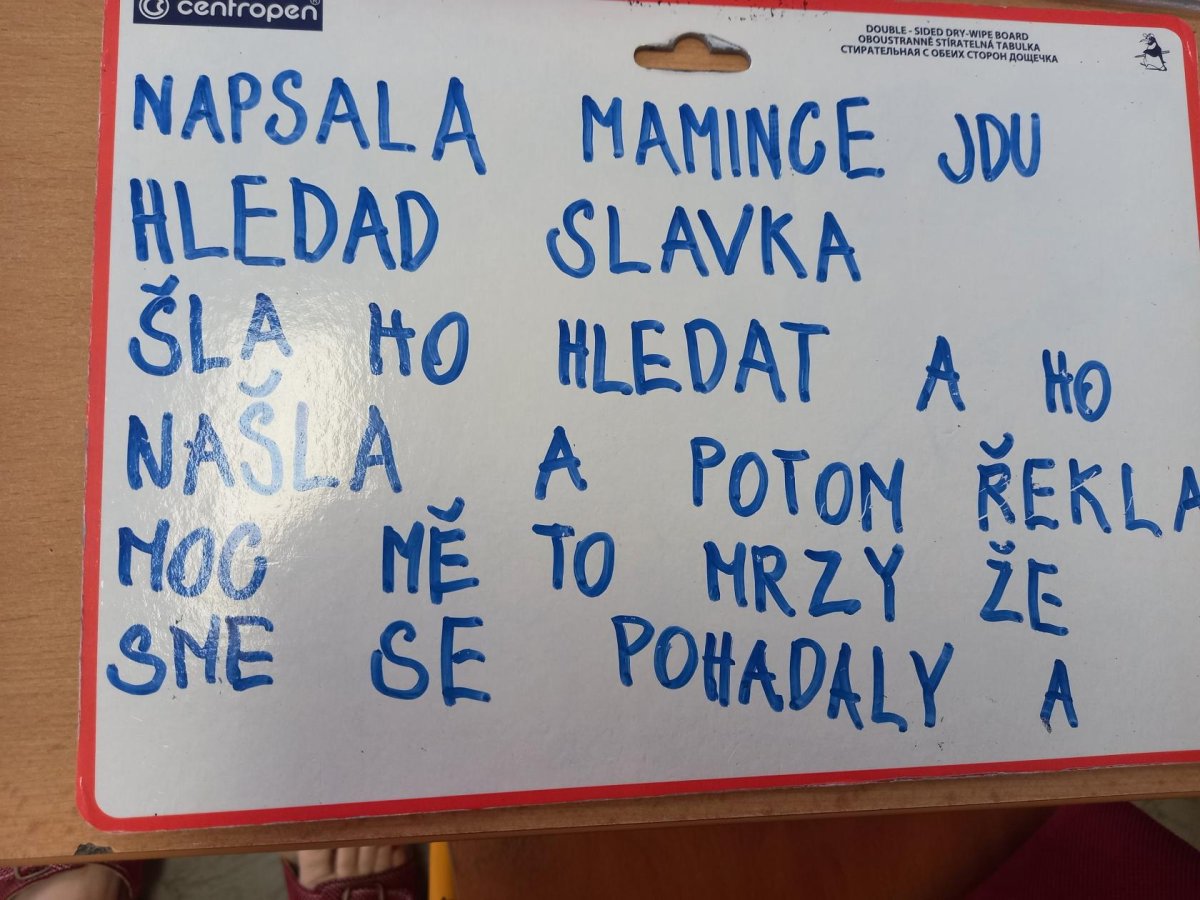 centropen
DOUBLE - SIDED DRY-WIPE BOARD
OBOUSTRANNĚ STÍRATELNÁ TABULKA
СТИРАТЕЛЬНАЯ С ОБЕИХ СТОРОН ДОЩЕЧКА
NAPSALA MAMINCE JDU
HLEDAD SLAVKA
ŠLA HO HLEDAT A HO
NAŠLA A POTOM ŘEKLA
MOC MĚ TO MRZY ŽE
SME SE POHADALY A